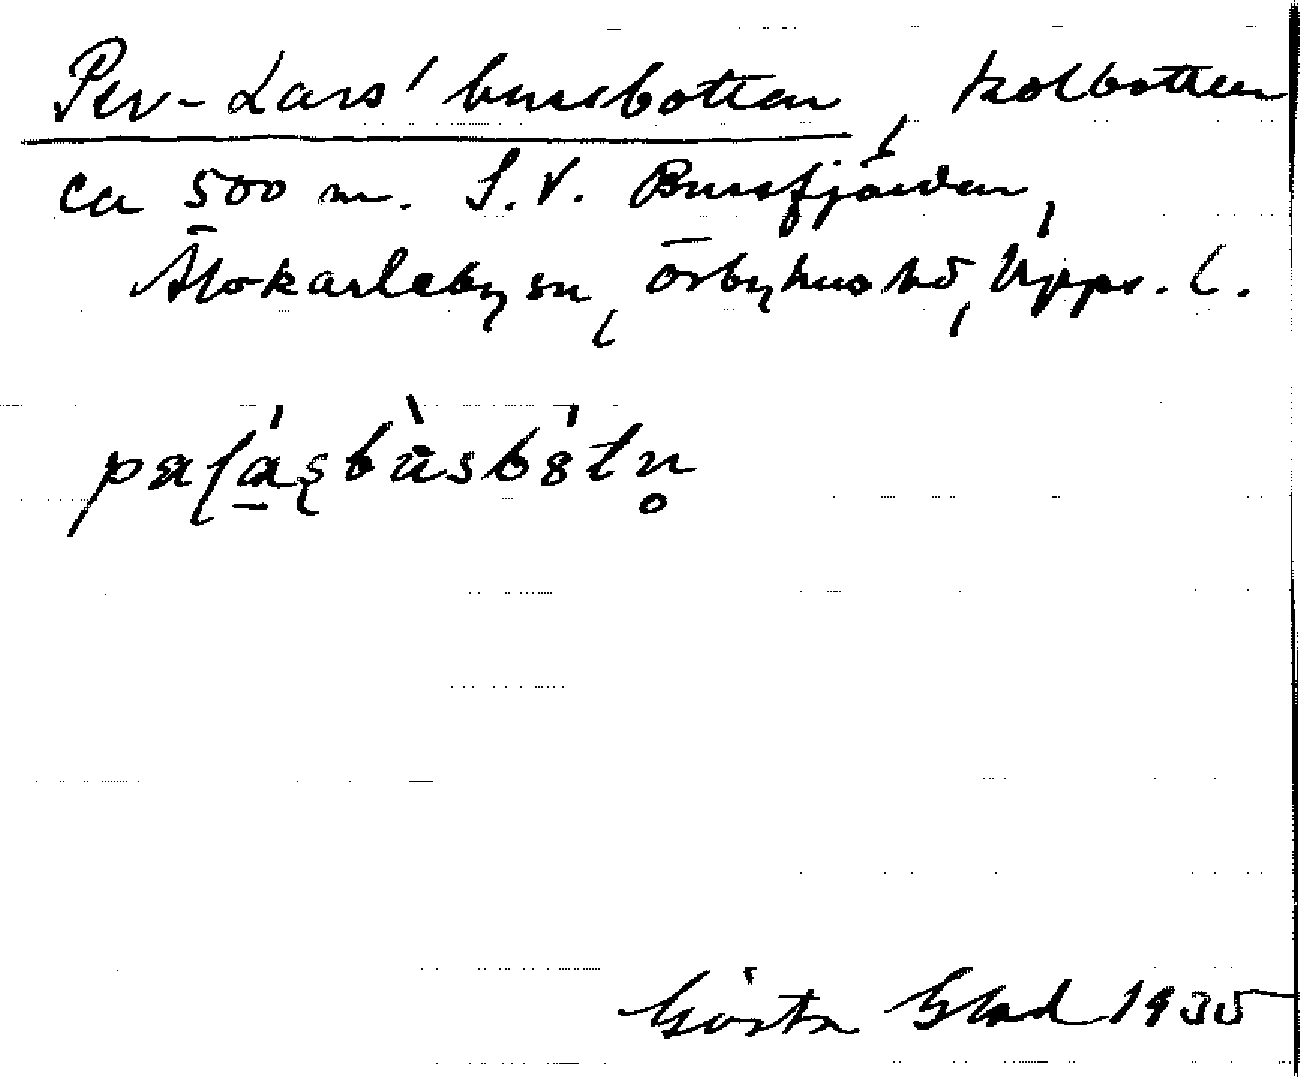 Per-Lars' bussbotten, kolbotten
ca 500 m. S.V. Bussfjärden,
Älvkarleby sn, Örbyhus hd, Upps. l.
Gösta Blad 1935